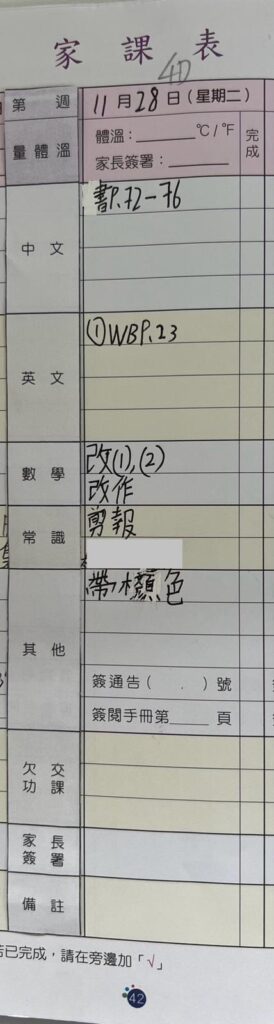 家課表
4D
第 週 11月28日(星期二)
量體溫 體溫:______℃/℉ 完成
家長簽署:______
中文 書P.72-76
英文 ①WBP.23
數學 改(1),(2)
改作
常識 剪報
其他 帶水顏色
簽通告( . )號
簽閱手冊第____頁
欠交功課
家長簽署
備註
若已完成,請在旁邊加「√」
42